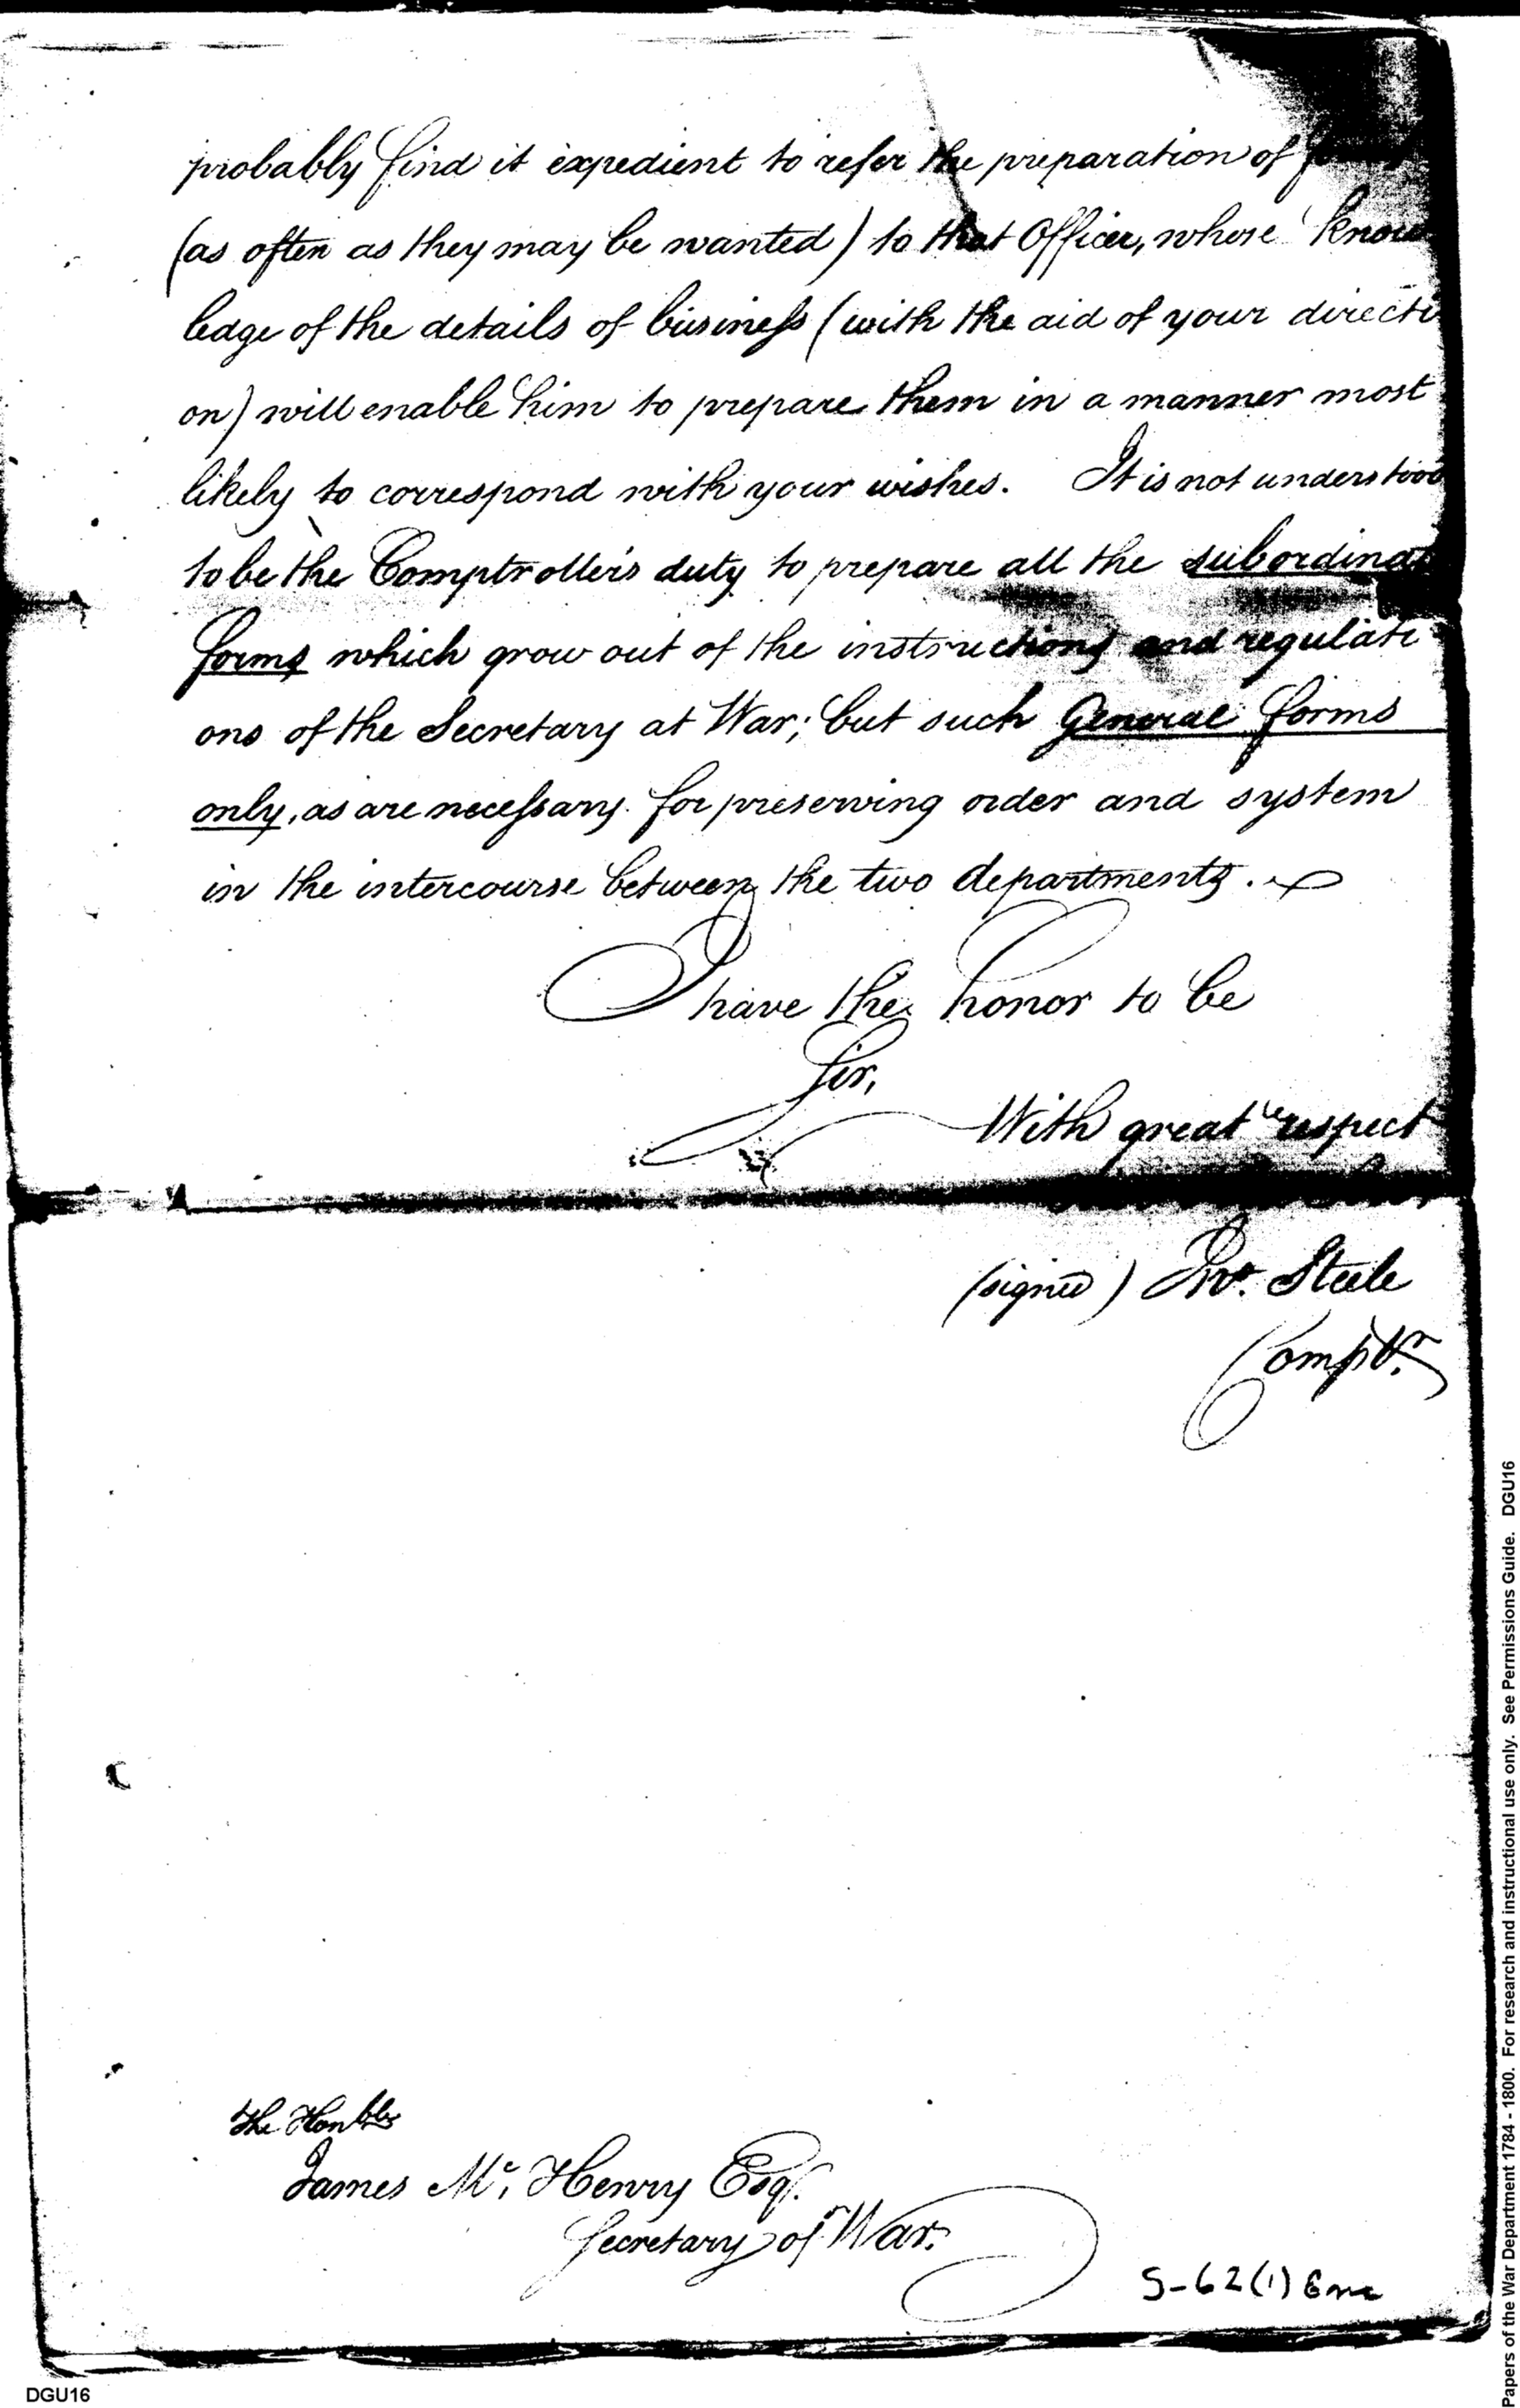 probably find it expedient to refer the preparation of
(as often as they may be wanted) to that Officer, whose know
ledge of the details of business (with the aid of your directi
on) will enable him to prepare them in a manner most
likely to correspond with your wishes. It is not understood
to be the Comptroller's duty to prepare all the subordinat
forms which grow out of the instructions and regulati
ons of the Secretary at War; but such General forms
only, as are necessary for preserving order and system
in the intercourse between the two departments.
I have the honor to be
Sir,
With great respect
(signed) Jno. Steele
Comptr.
The Honble
James Mc. Henry Esqr.
Secretary of War.
S-62(1) Enc
DGU16
Papers of the War Department 1784 - 1800. For research and instructional use only. See Permissions Guide. DGU16